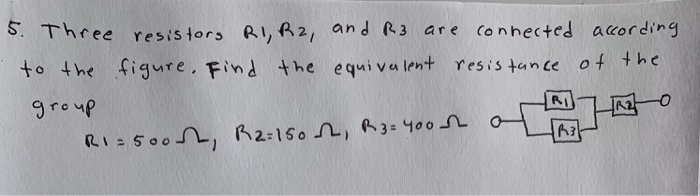 5. Three resistors R1, R2, and R3 are connected according
to the figure. Find the equivalent resistance of the
group
R1 = 500 Ω, R2=150 Ω, R3=400 Ω
R1
R2
R3